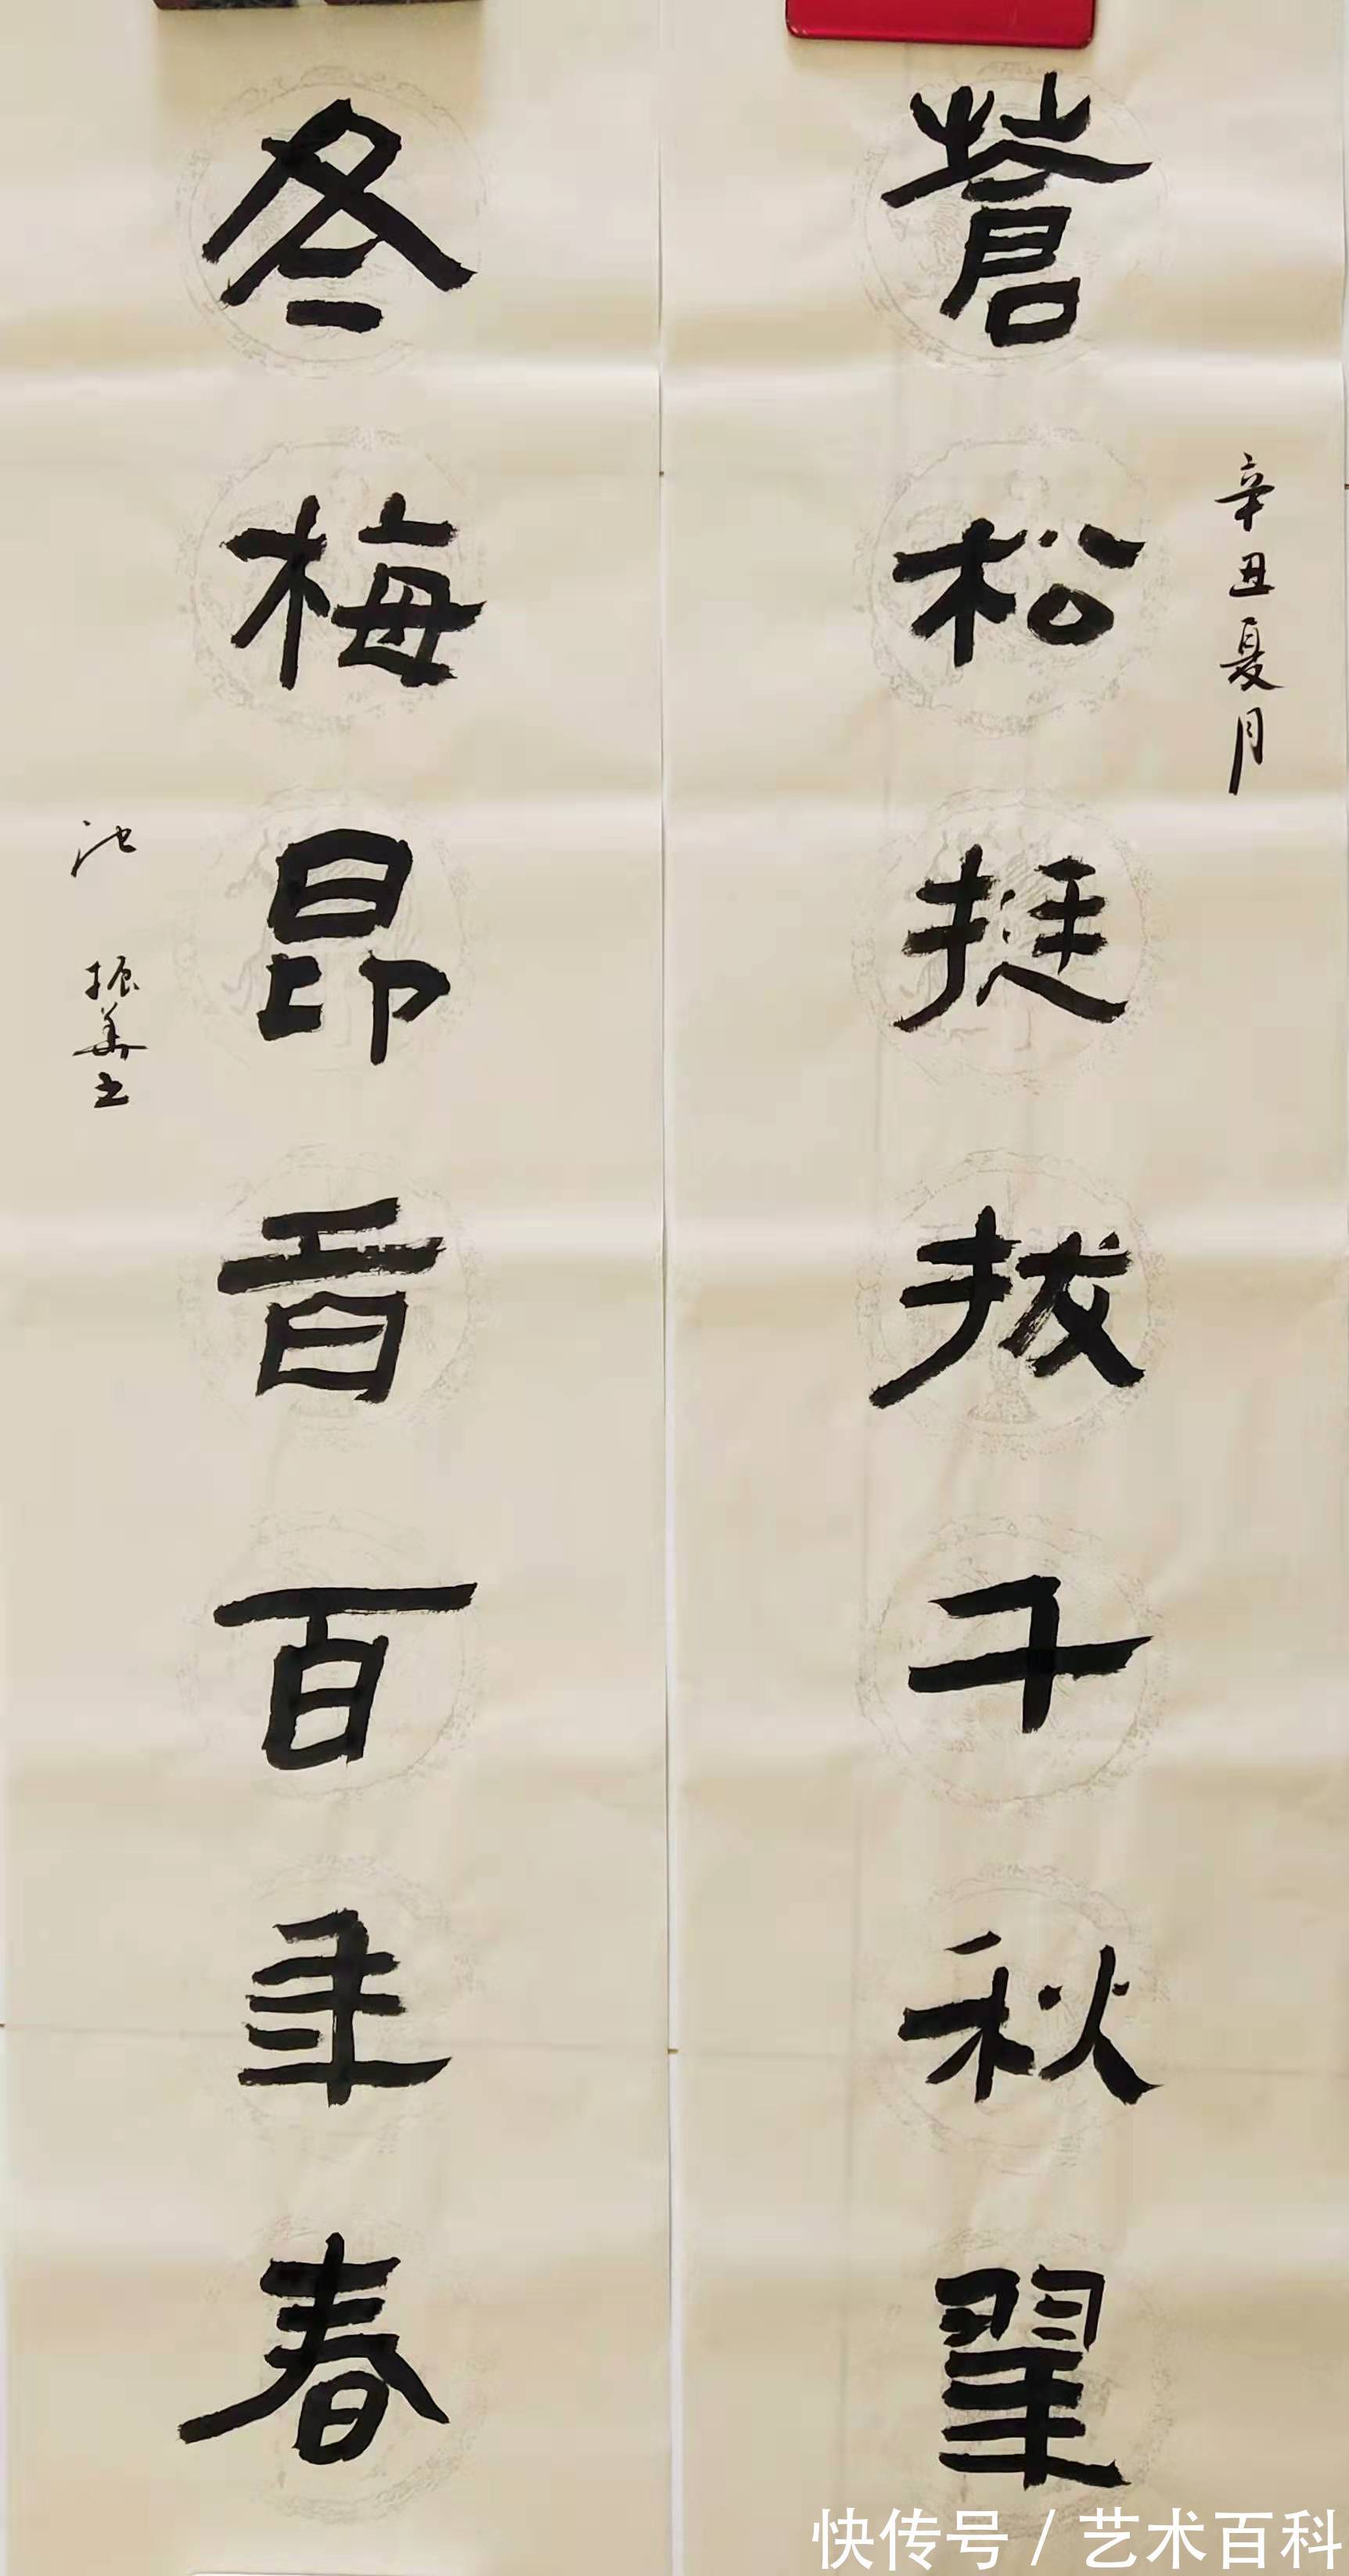 辛丑夏月
蒼松挺拔千秋翠
冬梅昂首百年春
池振书
快传号 / 艺术百科